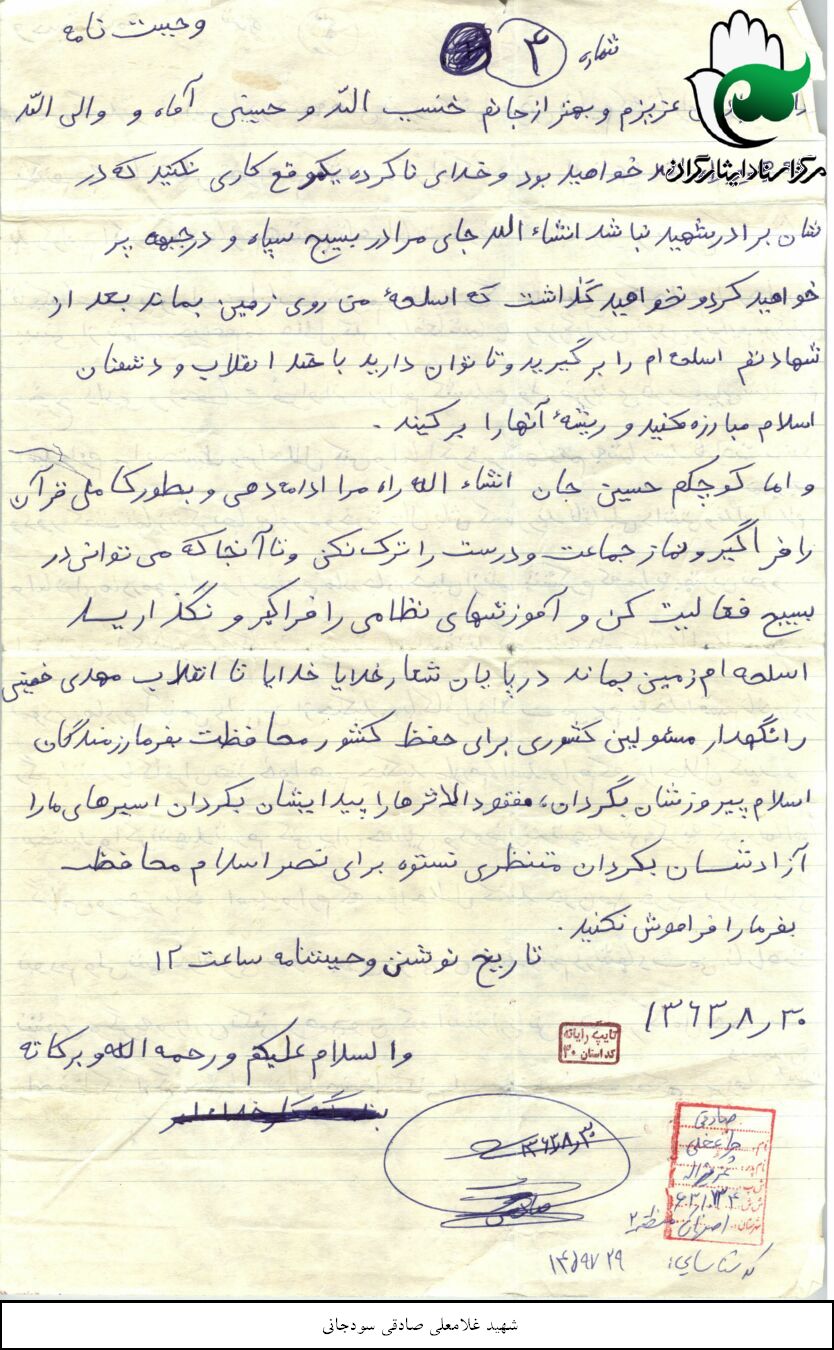 وصیت نامه
شماره ۴
عزیزم و بهتر از جانم حبیب الله و حسینی آماه و والی الله
مرکز اسناد ایثارگران
خواهید بود و خدای ناکرده یکموقع کاری نکنید که در
شان برادر شهید نباشد انشاء الله جای مرا در بسیج سپاه و در جبهه پر
خواهید کرد و نخواهید گذاشت که اسلحهٔ من روی زمین بماند بعد از
شهادتم اسلحه ام را برگیرید و تا توان دارید با ضد انقلاب و دشمنان
اسلام مبارزه کنید و ریشهٔ آنها را برکنید .
و اما کوچکم حسین جان انشاء الله راه مرا ادامه دهی و بطور کاملی قرآن
را فراگیر و نماز جماعت و درست را ترک نکن و تا آنجا که می توانی در
بسیج فعالیت کن و آموزشهای نظامی را فراگیر و نگذارید
اسلحه ام زمین بماند در پایان شعار خدایا خدایا تا انقلاب مهدی خمینی
را نگهدار مسئولین کشوری برای حفظ کشور محافظت بفرما رزمندگان
اسلام پیروزشان بگردان، مفقود الاثرها را پیدایشان بگردان اسیرهای ما را
آزادشان بگردان منتظری نستوه برای نصر اسلام محافظت
بفرما ما را فراموش نکنید .
تاریخ نوشتن وصیتنامه ساعت ۱۲
۳۰ ر ۸ ر ۱۳۶۳
تایپ رایانه
کد استان ۳۰
والسلام علیکم و رحمه الله و برکاته
۳۰ ر ۸ ر ۱۳۶۳
صادقی
صادقی
نام:
نام پدر: عزیزاله
ش پ:
ش ش:
شهرستان: اصفهان منطقه ۲
کد شناسایی:
شهید غلامعلی صادقی سودجانی